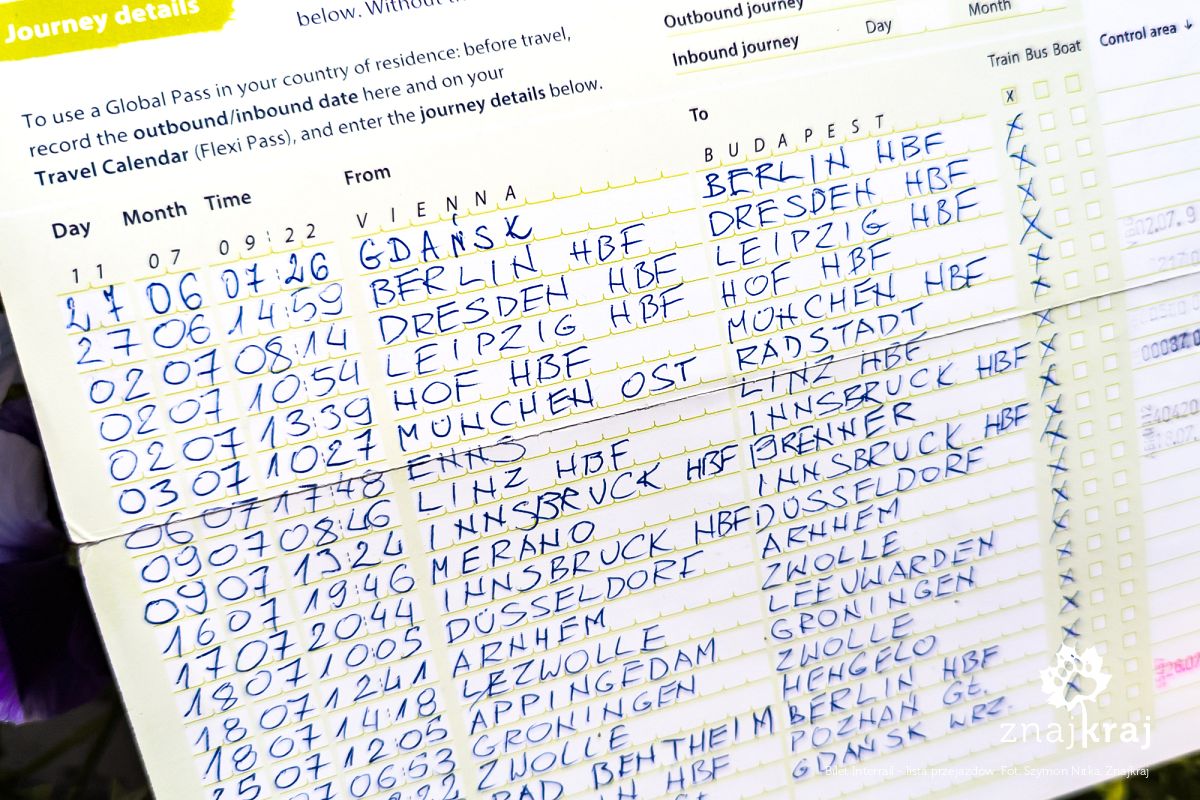 Journey details
below. Without
To use a Global Pass in your country of residence: before travel,
record the outbound/inbound date here and on your
Travel Calendar (Flexi Pass), and enter the journey details below.
Outbound journey
Inbound journey Day Month
Day Month Time From To Train Bus Boat Control area
11 07 09:22 VIENNA BUDAPEST x
27 06 07:26 GDAŃSK BERLIN HBF x
27 06 14:59 BERLIN HBF DRESDEN HBF x
02 07 08:14 DRESDEN HBF LEIPZIG HBF x
02 07 10:54 LEIPZIG HBF HOF HBF x
02 07 13:39 HOF HBF MÜNCHEN HBF x
03 07 10:27 MÜNCHEN OST RADSTADT x
06 07 17:48 ENNS LINZ HBF x
09 07 08:46 LINZ HBF INNSBRUCK HBF x
09 07 13:24 INNSBRUCK HBF BRENNER x
16 07 19:46 MERANO INNSBRUCK HBF x
17 07 20:44 INNSBRUCK HBF DÜSSELDORF x
18 07 10:05 DÜSSELDORF ARNHEM x
18 07 12:41 ARNHEM ZWOLLE x
18 07 14:18 ZWOLLE LEEUWARDEN x
25 07 12:05 APPINGEDAM GRONINGEN x
07 06:53 GRONINGEN ZWOLLE x
ZWOLLE HENGELO
BAD BENTHEIM BERLIN HBF x
HBF POZNAŃ GŁ.
GDAŃSK WRZ.
02.07.9
znajkraj
Bilet Interrail - lista przejazdów. Fot. Szymon Nitka, Znajkraj